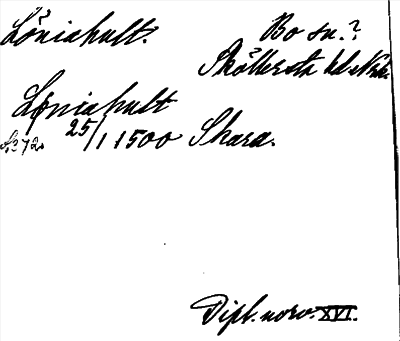 Löniahult. Bo sn.?
Sköllersta hd. Nke.
Løniahult
25/1 1500 Skara.
Dipl. norv. XVI.